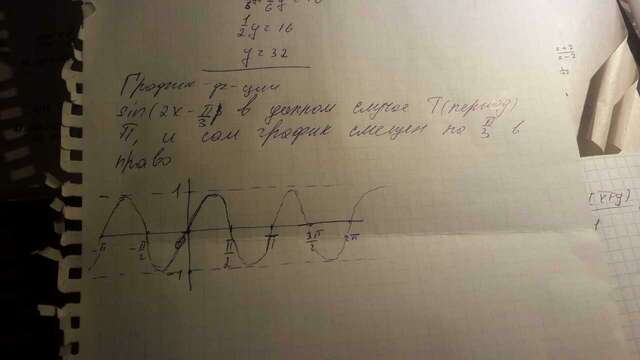 1/2 y = 16
y = 32
График ф-ции
sin(2x - π/3) в данном случае T(период)
π, и сам график смещен на π/3 в
право
1
-π -π/2 0 π/2 π 3π/2 2π
-1